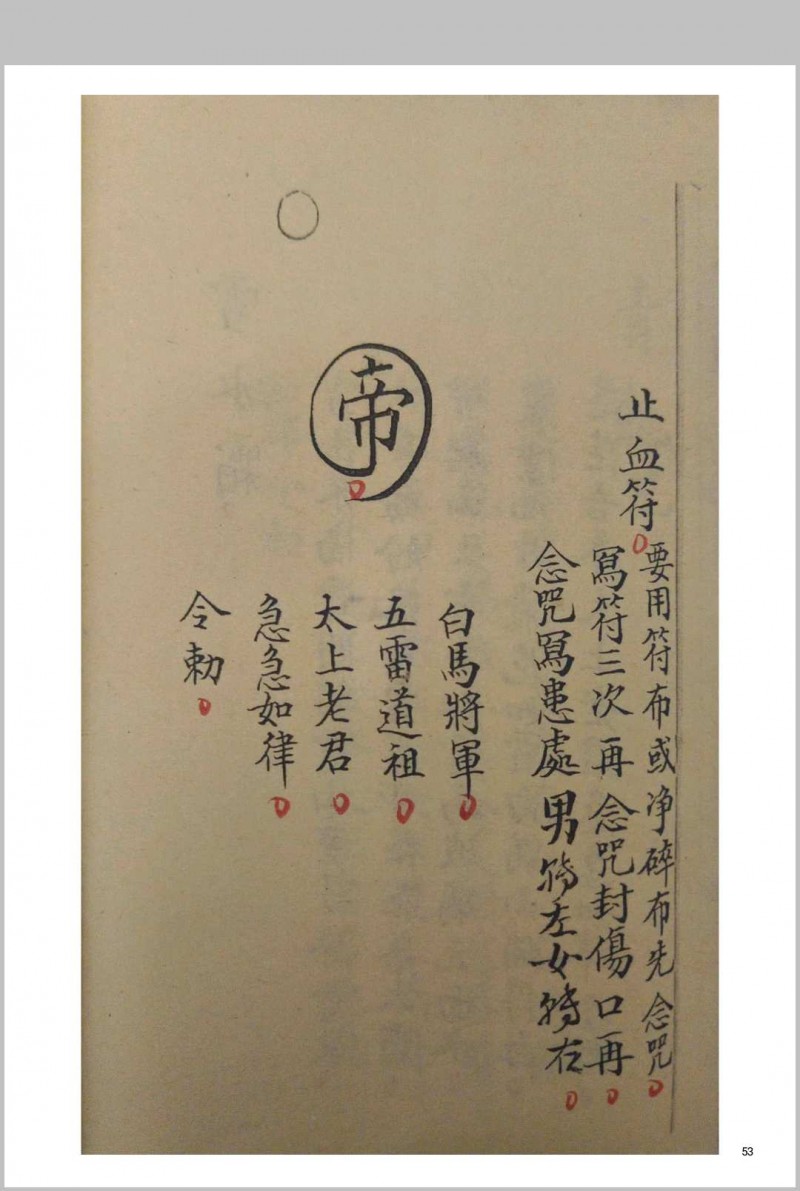 止血符
要用符布或净碎布先念咒
寫符三次再念咒封傷口再
念咒冩患處男轉左女轉右
白馬將軍
五雷道祖
太上老君
急急如律
令勅
帝
53